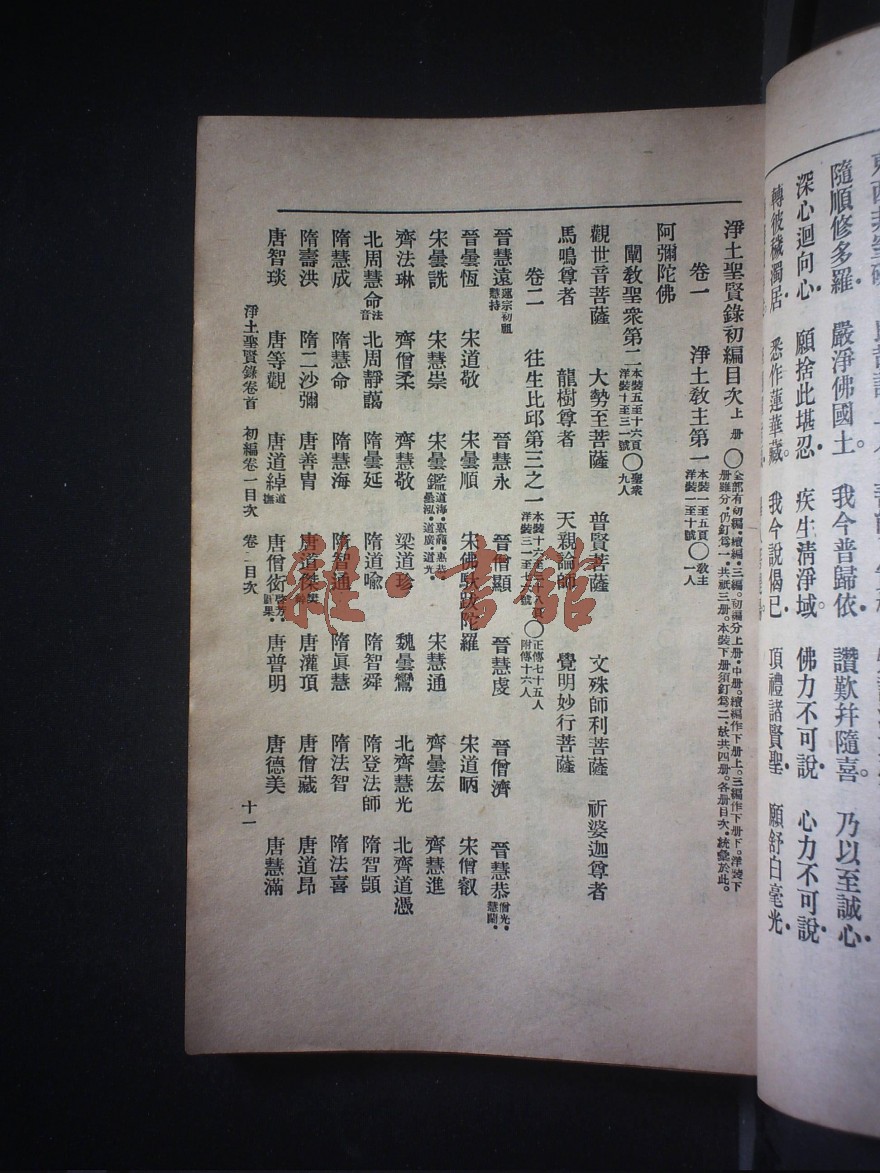 隨順修多羅．嚴淨佛國土。我今普歸依．讚歎幷隨喜。乃以至誠心．
深心迴向心．願捨此堪忍．疾生清淨域。佛力不可說．心力不可說．
轉彼穢濁居．悉作蓮華藏。我今說偈已．頂禮諸賢聖．願舒白毫光．
淨土聖賢錄初編目次上册 〇全部有初編．續編．三編。初編分上册．中册。續編作下册上。三編作下册下。洋裝下册雖分．仍釘爲一．共祇三册。本裝下册須釘爲二．故共四册。各册目次．統彙於此。
卷一 淨土敎主第一 本裝一至五頁洋裝一至十號 〇敎主一人
阿彌陀佛
闡敎聖衆第二 本裝五至十六頁洋裝十至三一號 〇聖衆九人
觀世音菩薩 大勢至菩薩 普賢菩薩 文殊師利菩薩 祈婆迦尊者
馬鳴尊者 龍樹尊者 天親論師 覺明妙行菩薩
卷二 往生比邱第三之一 〇正傳七十五人附傳十六人
晉慧遠蓮宗初祖慧持 晉慧永 晉僧顯 晉慧虔 晉僧濟 晉慧恭僧光．慧蘭．
晉曇恆 宋道敬 宋曇順 宋佛馱跋陀羅 宋慧通 宋道昞 宋僧叡
宋曇詵 宋慧崇 宋曇鑑道海．惠龕．惠恭．曇泓．道廣．道光． 齊曇宏 齊慧進
齊法琳 齊僧柔 齊慧敬 梁道珍 魏曇鸞 北齊慧光 北齊道憑
北周慧命法音 北周靜藹 隋曇延 隋道喩 隋智舜 隋登法師 隋智顗
隋慧成 隋慧命 隋慧海 隋智通 隋眞慧 隋法智 隋法喜
隋壽洪 隋二沙彌 唐善胄 唐道傑 唐灌頂 唐僧藏 唐道昂
唐智琰 唐等觀 唐道綽道撫 唐僧衒啓芳．圓果． 唐普明 唐德美 唐慧滿
淨土聖賢錄卷首 初編卷一目次 卷二目次 十一
雜·書館